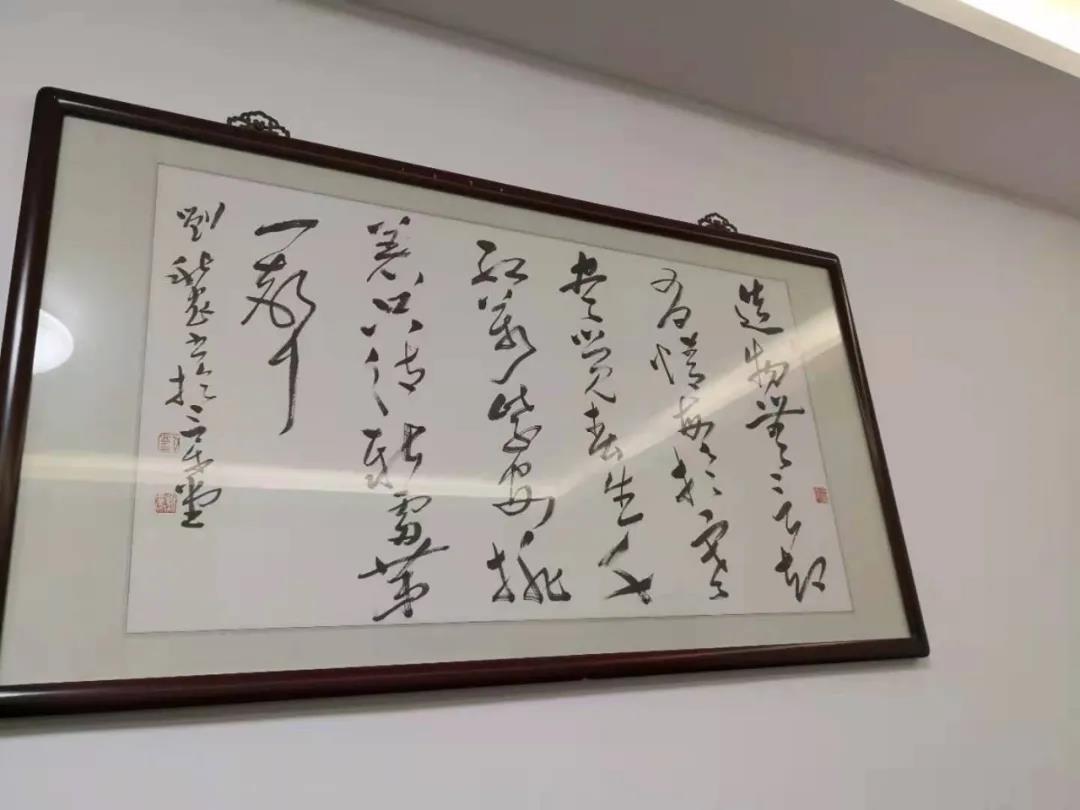 造物無言却
有情每於寒
盡覺春生千
紅萬紫安排
着只待新雷第
一聲
劉 書於三 堂